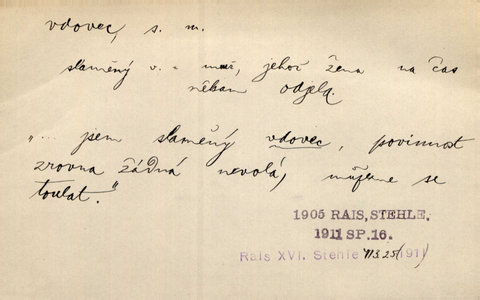 vdovec, s. m.
slaměný v. = muž, jehož žena na čas
někam odjela.
"... jsem slaměný vdovec, povinnost
zrovna žádná nevolá, můžeme se
toulat."
1905 RAIS, STEHLE.
1911 SP. 16.
Rais XVI. Stehle 113.25 (1911)